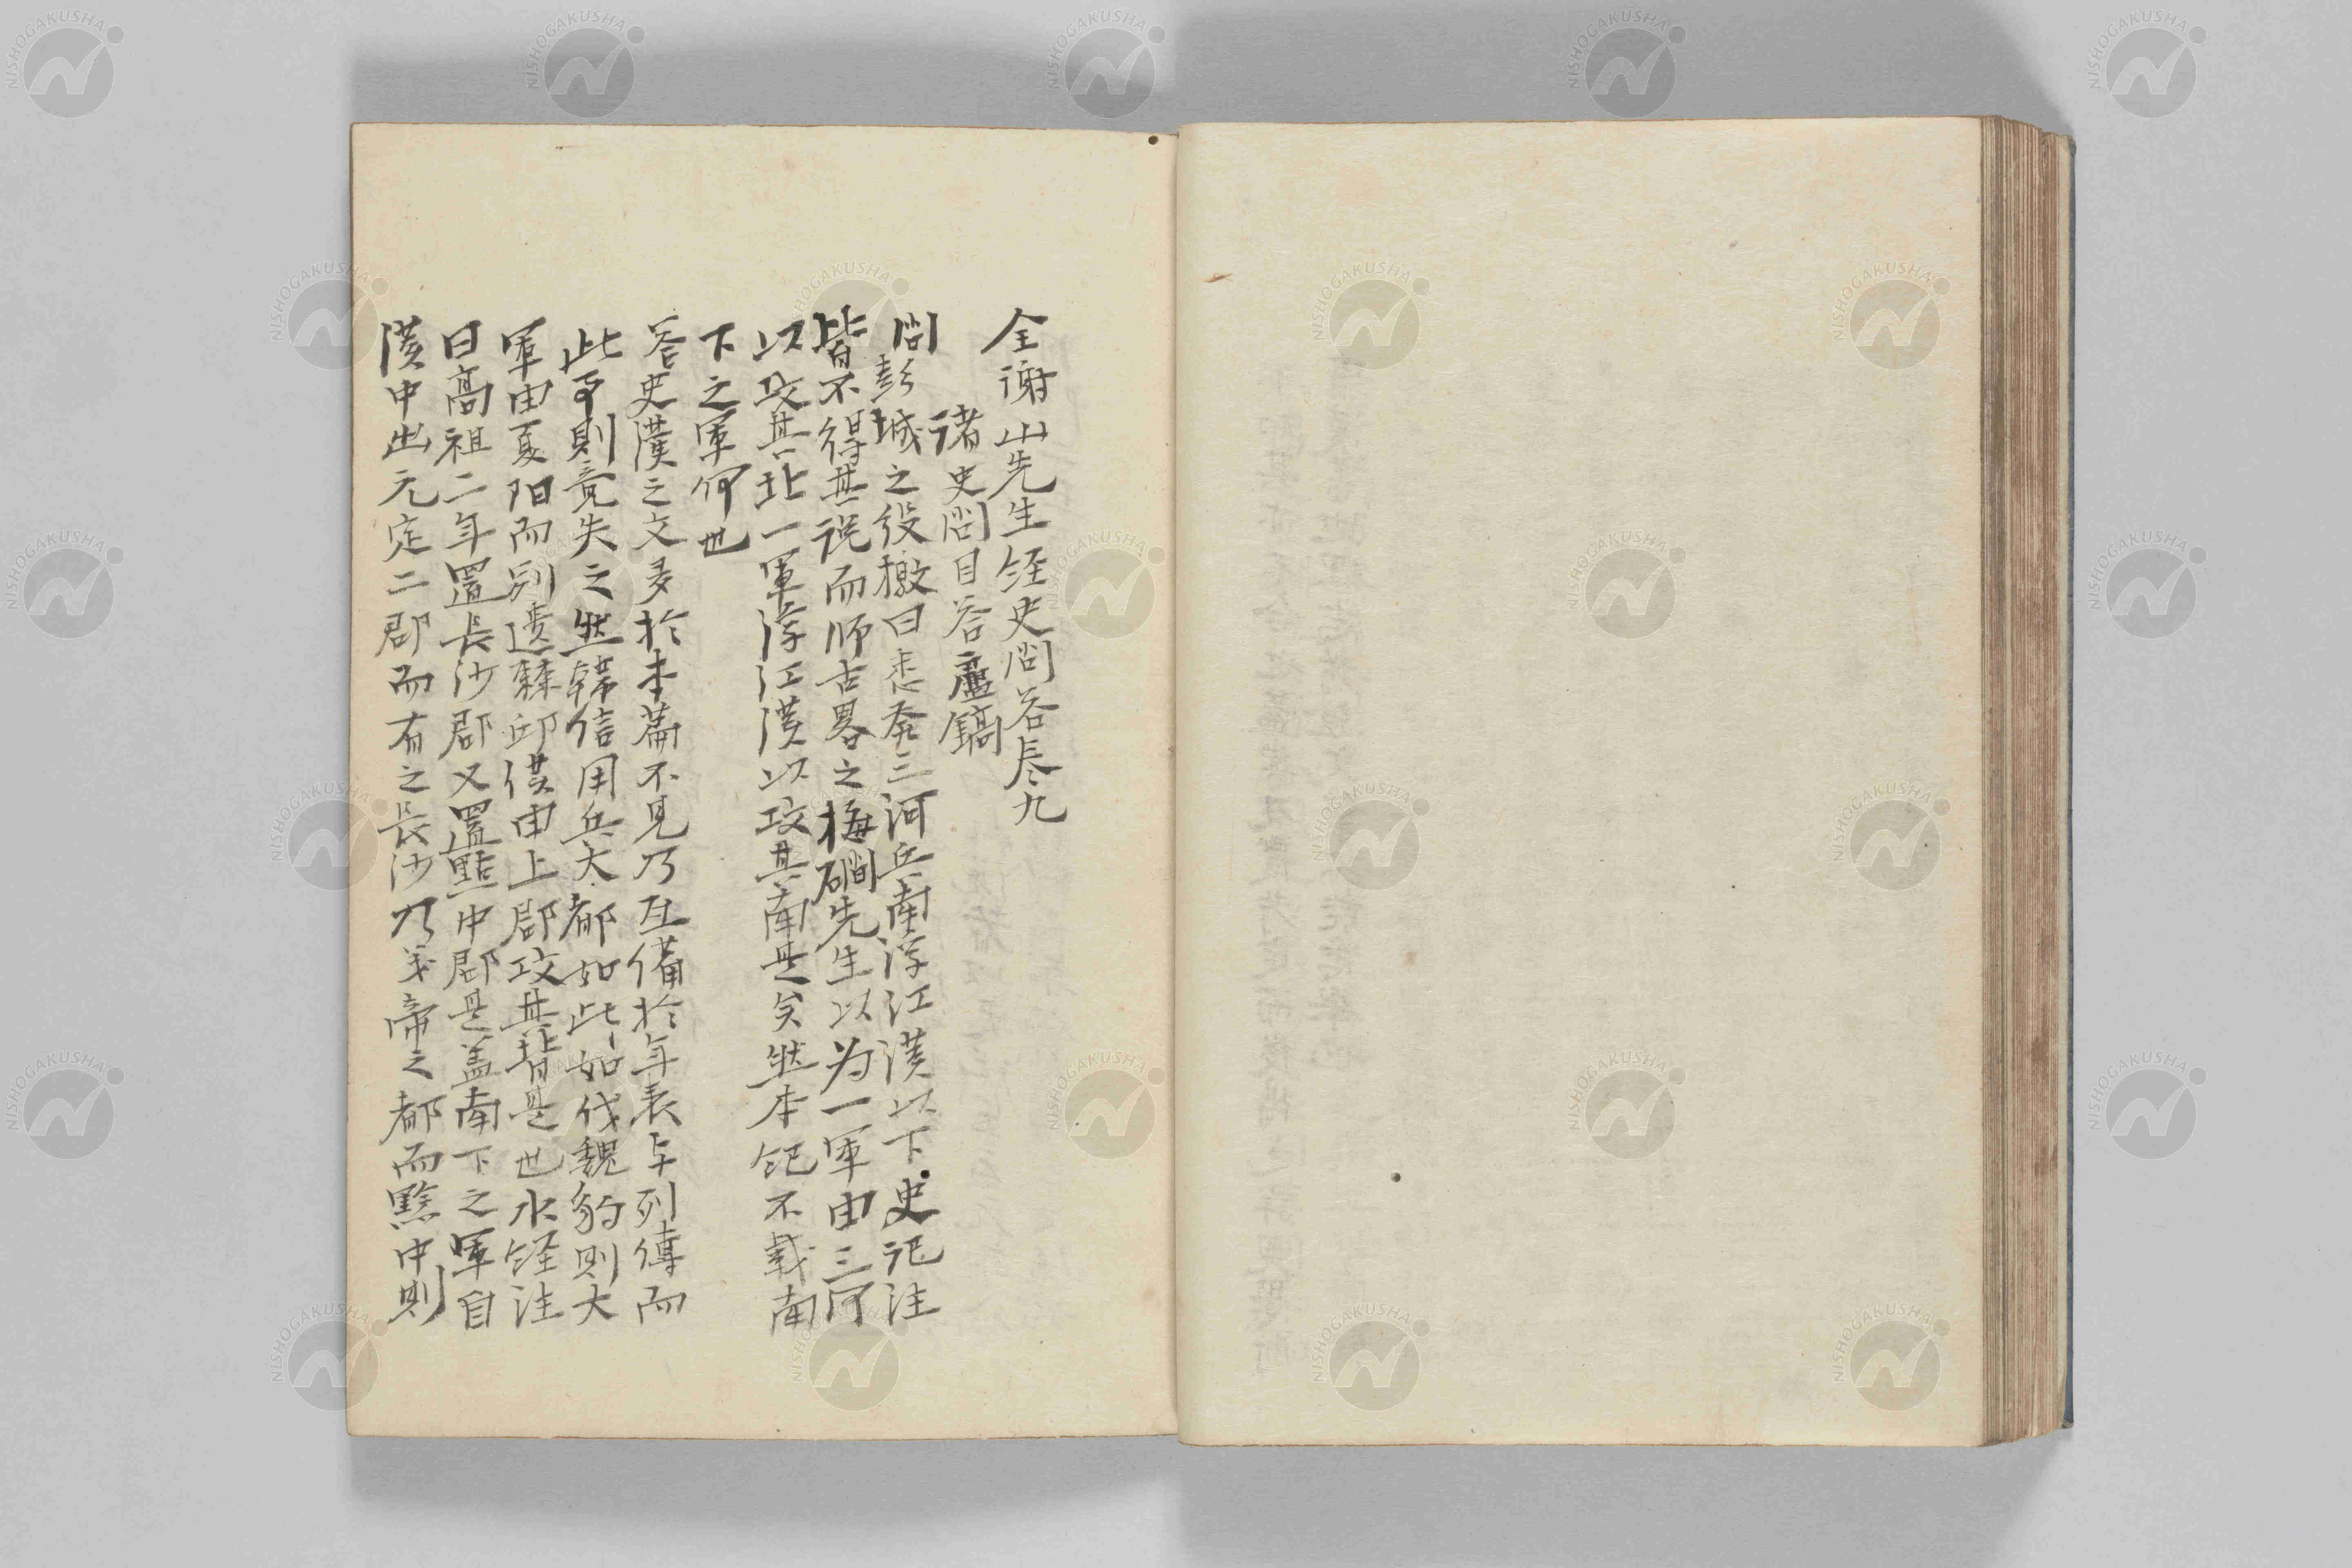 全謝山先生経史問答巻九
諸史問目答盧鎬
問彭城之役檄曰悉發三河兵南浮江漢以下史記注
皆不得其说而师古畧之梅磵先生以为一軍由三河
以攻其北一軍浮江漢以攻其南是矣然本紀不載南
下之軍何也
答史漢之文多於本篇不見乃互備於年表与列傳而
此事則竟失之然韓信用兵大都如此如伐魏豹則大
軍由夏阳而別遣棘邱侯由上郡攻其背是也水経注
曰高祖二年置長沙郡又置黔中郡是盖南下之軍自
漢中出先定二郡而有之長沙乃义帝之都而黔中則
NISHOGAKUSHA